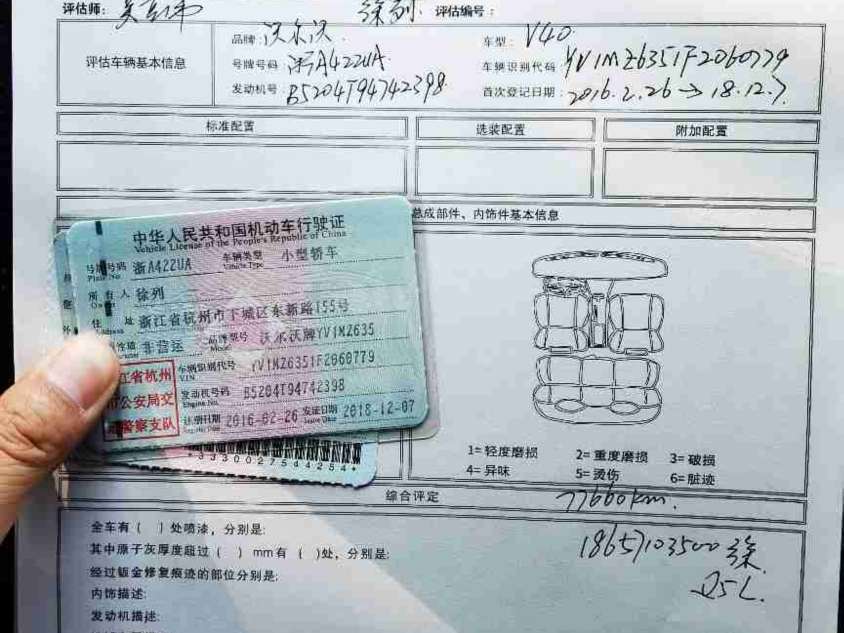 评估师: 徐列 评估编号:
评估车辆基本信息
品牌: 沃尔沃 车型: V40
号牌号码: 浙A422UA 车辆识别代码: YV1MZ6351F2060779
发动机号: B5204T94742398 首次登记日期: 2016.2.26→18.12.7
标准配置 选装配置 附加配置
总成部件、内饰件基本信息
中华人民共和国机动车行驶证
Vehicle License of the People's Republic of China
号牌号码 浙A422UA 车辆类型 小型轿车
Plate No. Vehicle Type
所有人 徐列
Owner
住址 浙江省杭州市下城区东新路155号
Address
性质 非营运 品牌型号 沃尔沃牌YV1MZ635
Model
江省杭州
市公安局交
警察支队
车辆识别代号 YV1MZ6351F2060779
VIN
发动机号码 B5204T94742398
Engine No.
注册日期 2016-02-26 发证日期 2018-12-07
Issue Date
*3330027544254*
1=轻度磨损 2=重度磨损 3=破损
4=异味 5=烫伤 6=脏迹
综合评定
77660km.
全车有( )处喷漆，分别是:
其中原子灰厚度超过( ) mm有( )处，分别是:
经过钣金修复痕迹的部位分别是:
内饰描述:
发动机描述:
18657103500 徐